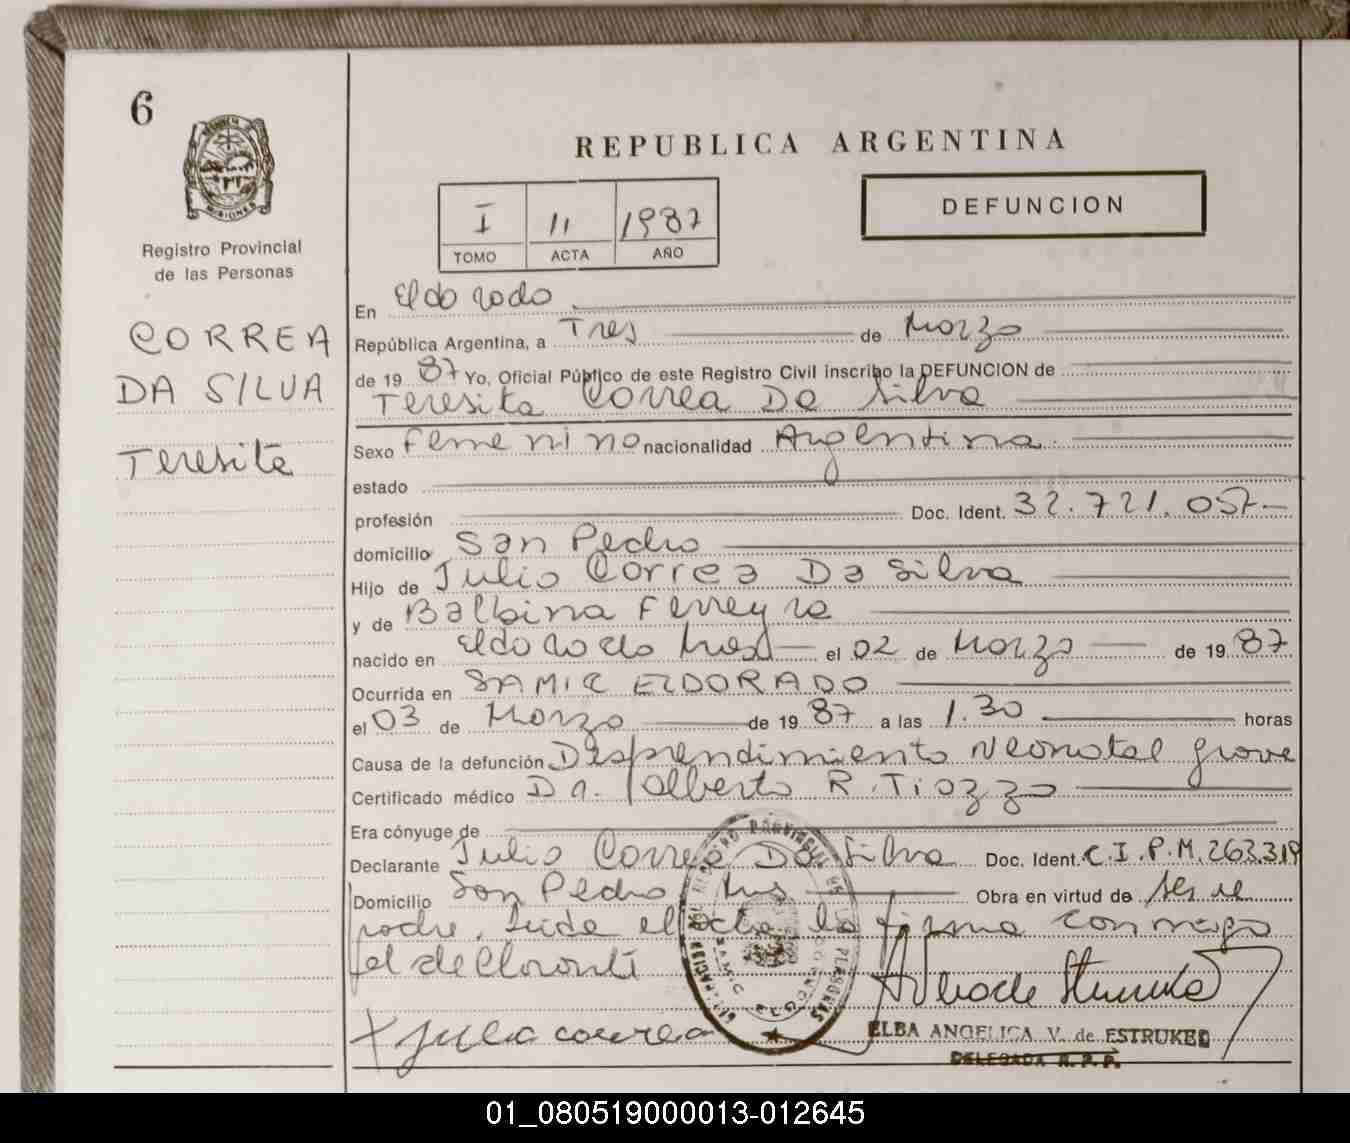 6
PROVINCIA DE
MISIONES
Registro Provincial
de las Personas
CORREA
DA SILVA
Teresita
REPUBLICA ARGENTINA
I 11 1987
TOMO ACTA AÑO
DEFUNCION
En Eldorado
República Argentina, a Tres de Marzo
de 1987 Yo, Oficial Público de este Registro Civil inscribo la DEFUNCION de
Teresita Correa Da Silva
Sexo Femenino nacionalidad Argentina
estado
profesión Doc. Ident. 32.721.057-
domicilio San Pedro
Hijo de Julio Correa Da Silva
y de Balbina Ferreyra
nacido en Eldorado Mnes el 02 de Marzo de 1987
Ocurrida en SAMIC ELDORADO
el 03 de Marzo de 1987 a las 1.30 horas
Causa de la defunción Desprendimiento Neonatal grave
Certificado médico Dr. Alberto R. Tiozzo
Era cónyuge de
Declarante Julio Correa Da Silva Doc. Ident. C.I.P.M. 263.319
Domicilio San Pedro Mnes Obra en virtud de ser el
padre. Leída el acta la firma conmigo
el declarante
x Julio correa
ELBA ANGELICA V. de ESTRUKEL
DELEGADA R. P. P.
REGISTRO PROVINCIAL DE LAS PERSONAS
SAMIC ELDORADO
01_080519000013-012645